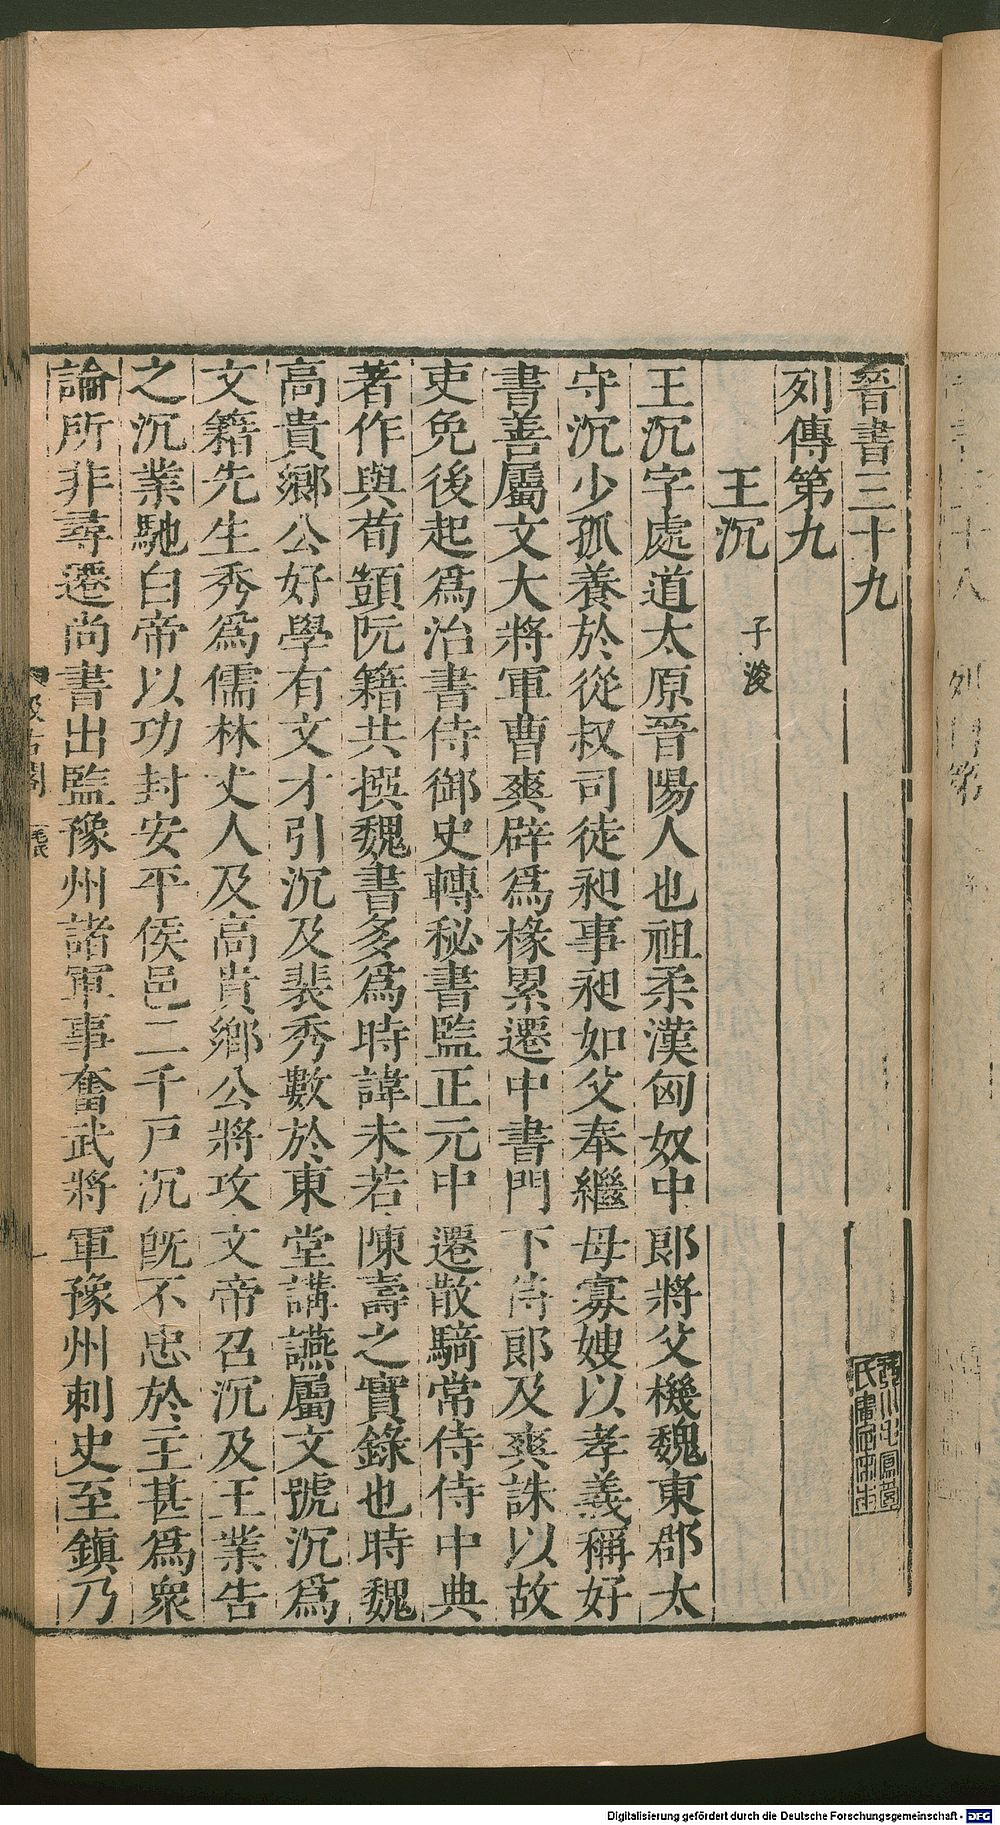 晉書三十九
列傳第九
王沉 子浚
王沉字處道太原晉陽人也祖柔漢匈奴中郎將父機魏東郡太
守沉少孤養於從叔司徒昶事昶如父奉繼母寡嫂以孝義稱好
書善屬文大將軍曹爽辟爲椽累遷中書門下侍郎及爽誅以故
吏免後起爲治書侍御史轉秘書監正元中遷散騎常侍侍中典
著作與荀顗阮籍共撰魏書多爲時諱未若陳壽之實錄也時魏
高貴鄉公好學有文才引沉及裴秀數於東堂講讌屬文號沉爲
文籍先生秀爲儒林丈人及高貴鄉公將攻文帝召沉及王業告
之沉業馳白帝以功封安平侯邑二千戸沉旣不忠於主甚爲衆
論所非尋遷尚書出監豫州諸軍事奮武將軍豫州刺史至鎮乃
汲古閣 毛氏
一
Digitalisierung gefördert durch die Deutsche Forschungsgemeinschaft - DFG